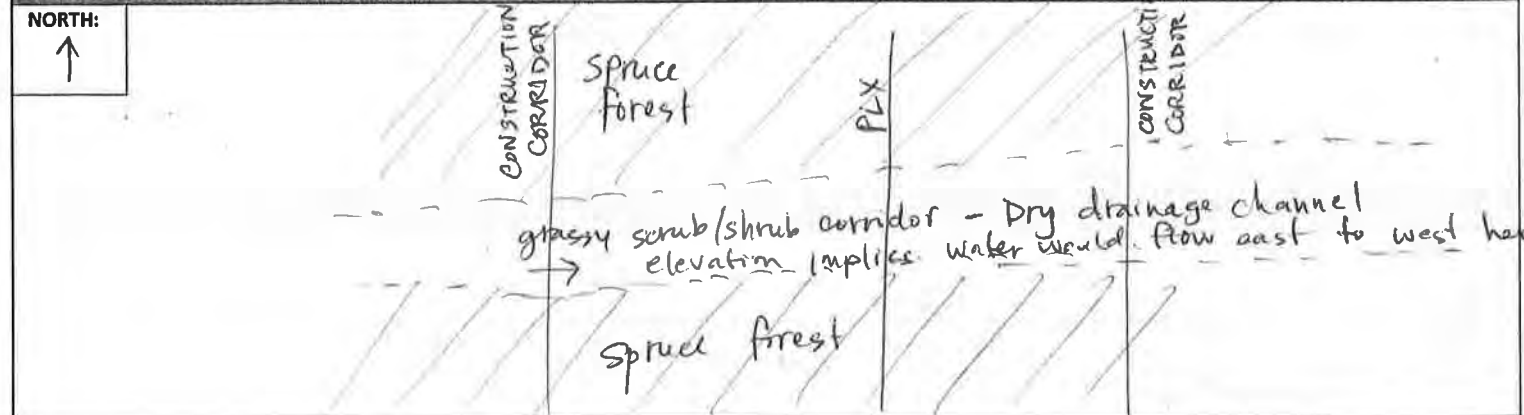 NORTH:
CONSTRUCTION
CORRIDOR
Spruce
forest
PLX
CONSTRUCTI
CORRIDOR
grassy scrub/shrub corridor - Dry drainage channel
elevation implies water would flow east to west he
spruce forest